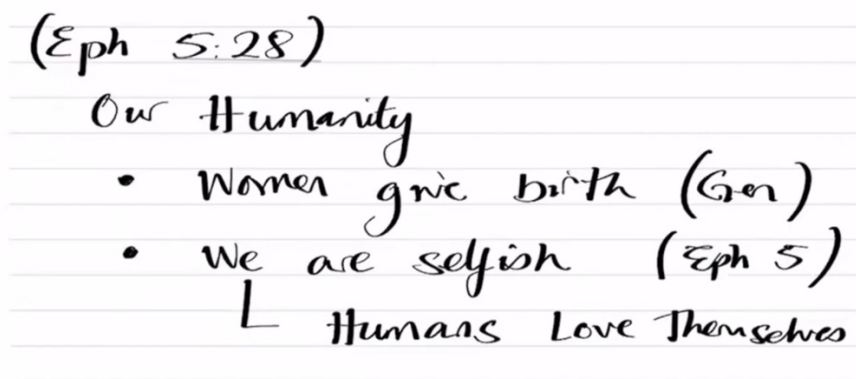 (Eph 5:28)
Our Humanity
• Women give birth (Gen)
• We are selfish (Eph 5)
Humans Love Themselves